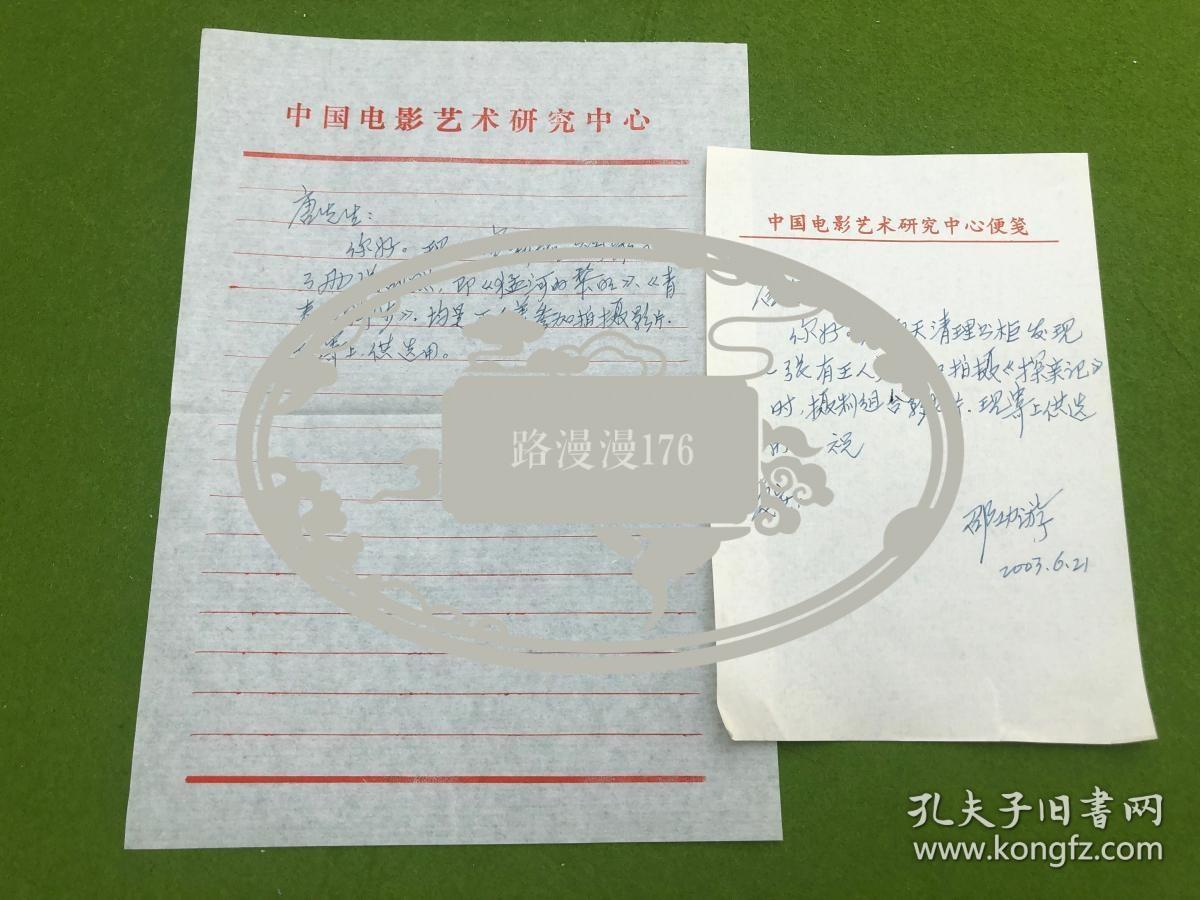 中国电影艺术研究中心
唐先生：
你好。
即《猛河的黎明》、《青
》，均是 参加拍摄影片．
上，供选用。
中国电影艺术研究中心便笺
你好． 天清理书柜发现
一张有王人 拍摄《探亲记》
时，摄制组合影 片．现寄上供选
祝
邵功游
2003.6.21
路漫漫176
孔夫子旧书网
www.kongfz.com